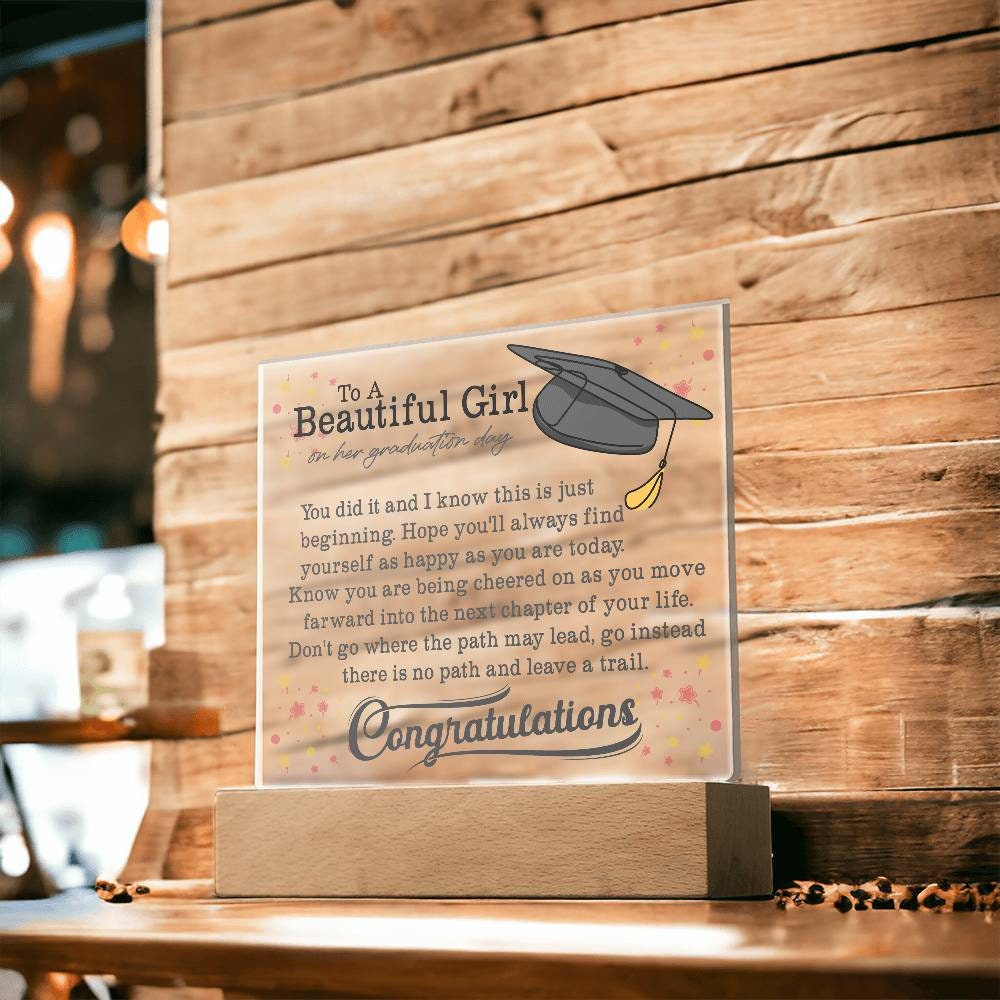 To A
Beautiful Girl
on her graduation day
You did it and I know this is just
beginning. Hope you'll always find
yourself as happy as you are today.
Know you are being cheered on as you move
farward into the next chapter of your life.
Don't go where the path may lead, go instead
there is no path and leave a trail.
Congratulations